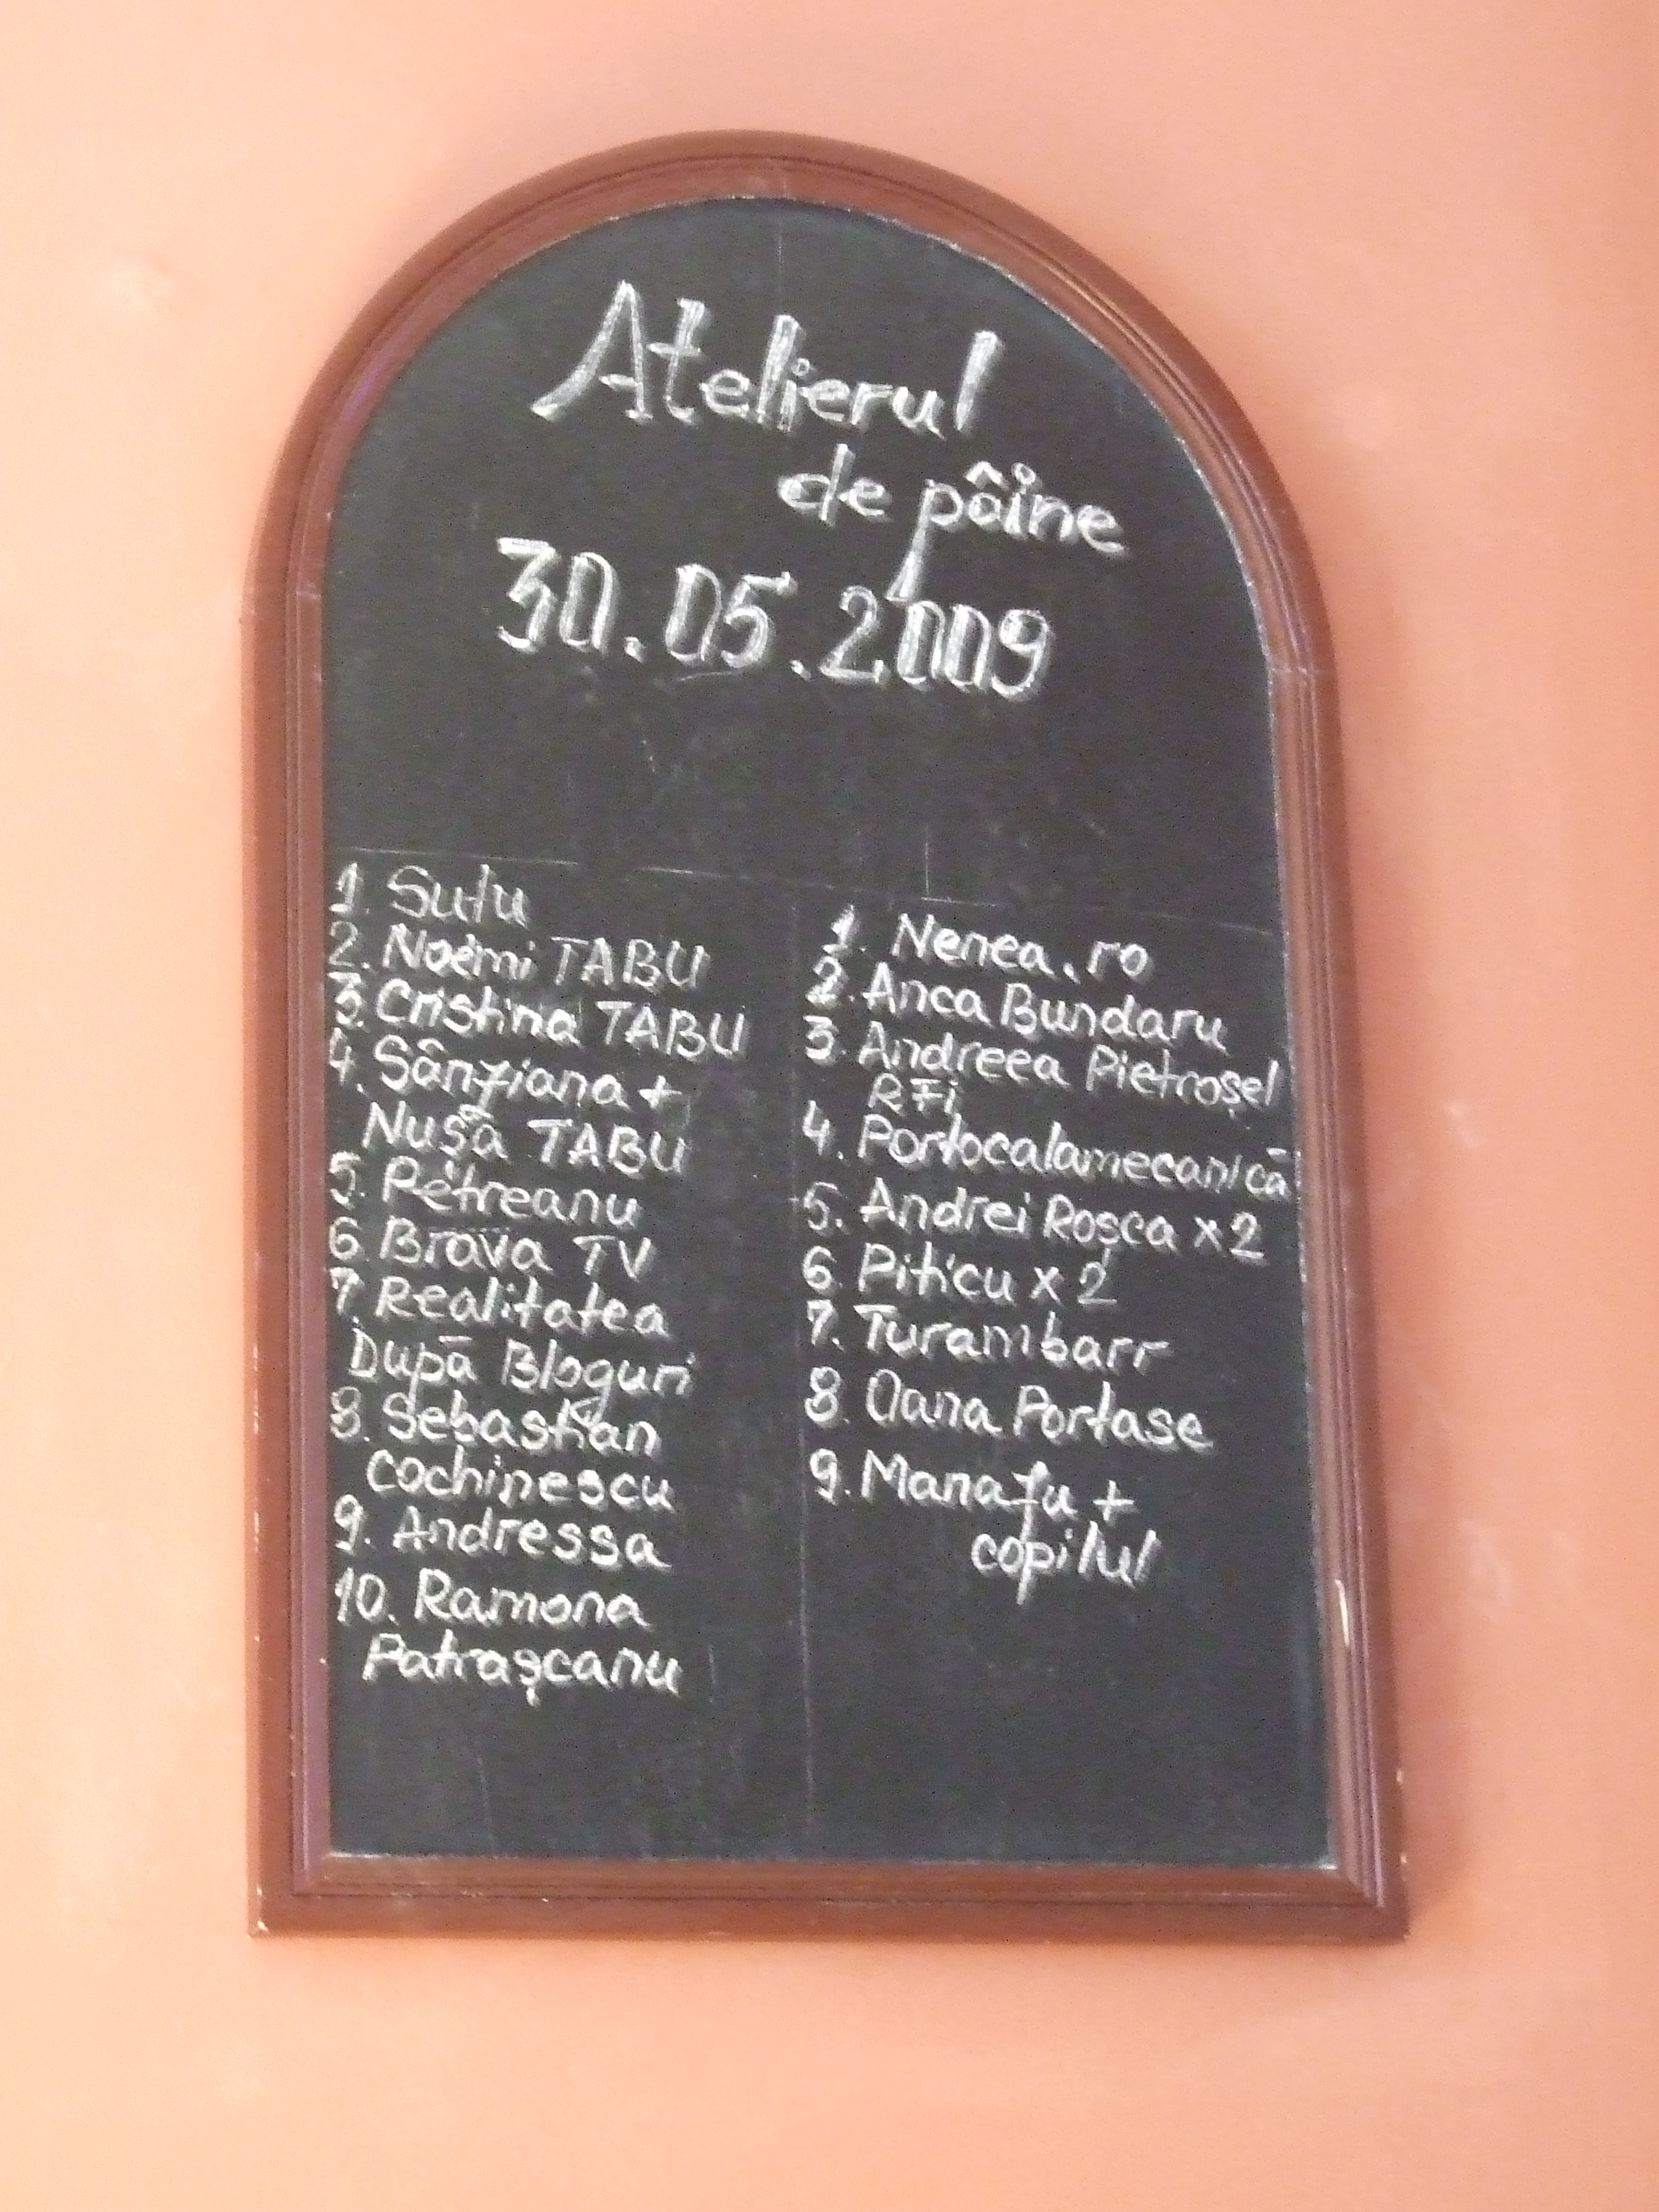 Atelierul
de pâine
30.05.2009
1. Sutu
2. Noemi TABU
3. Cristina TABU
4. Sânziana +
Nușă TABU
5. Petreanu
6. Brava TV
7. Realitatea
După Bloguri
8. Sebastian
Cochinescu
9. Andressa
10. Ramona
Patrașcanu
1. Nenea.ro
2. Anca Bundaru
3. Andreea Pietroșel
RFi
4. Portocalamecanică
5. Andrei Roșca x2
6. Piticu x 2
7. Turambarr
8. Oana Portase
9. Manafu +
copilul